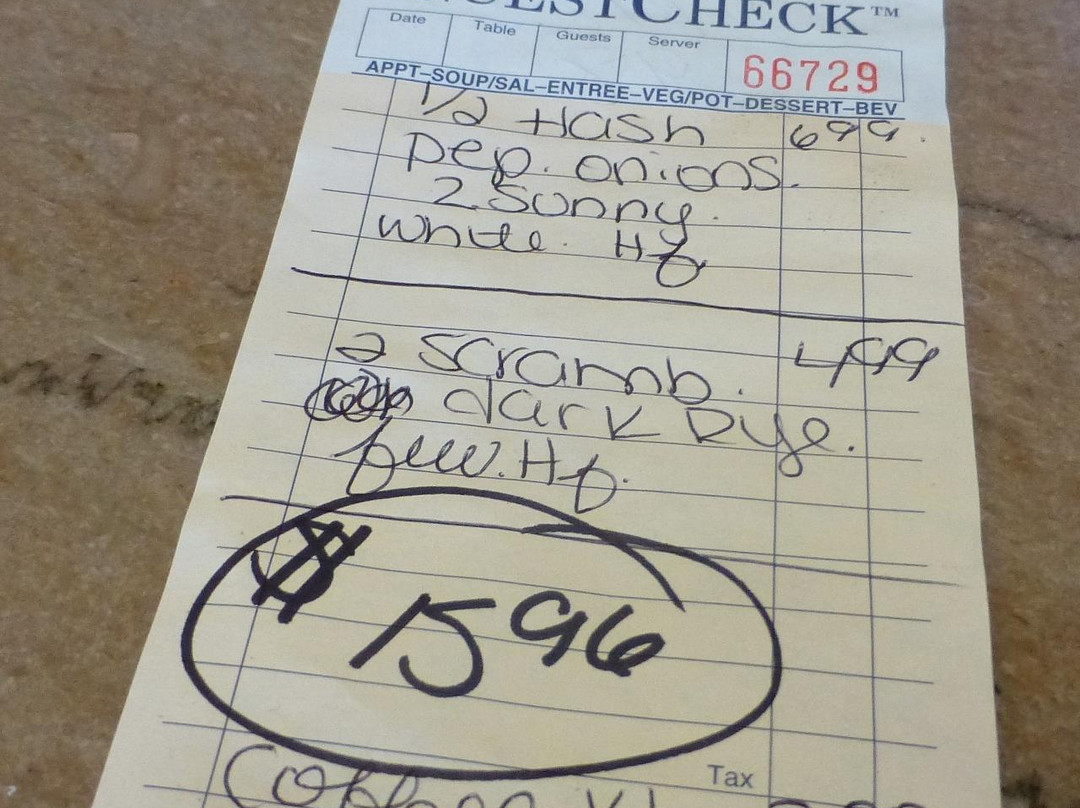 GUESTCHECK™
Date Table Guests Server 66729
APPT–SOUP/SAL–ENTREE–VEG/POT–DESSERT–BEV
1/2 Hash 699.
Pep. onions.
2 Sunny.
White. Hf
2 Scramb. 499
dark Rye.
few. Hf.
$ 1596
Tax
Coffee